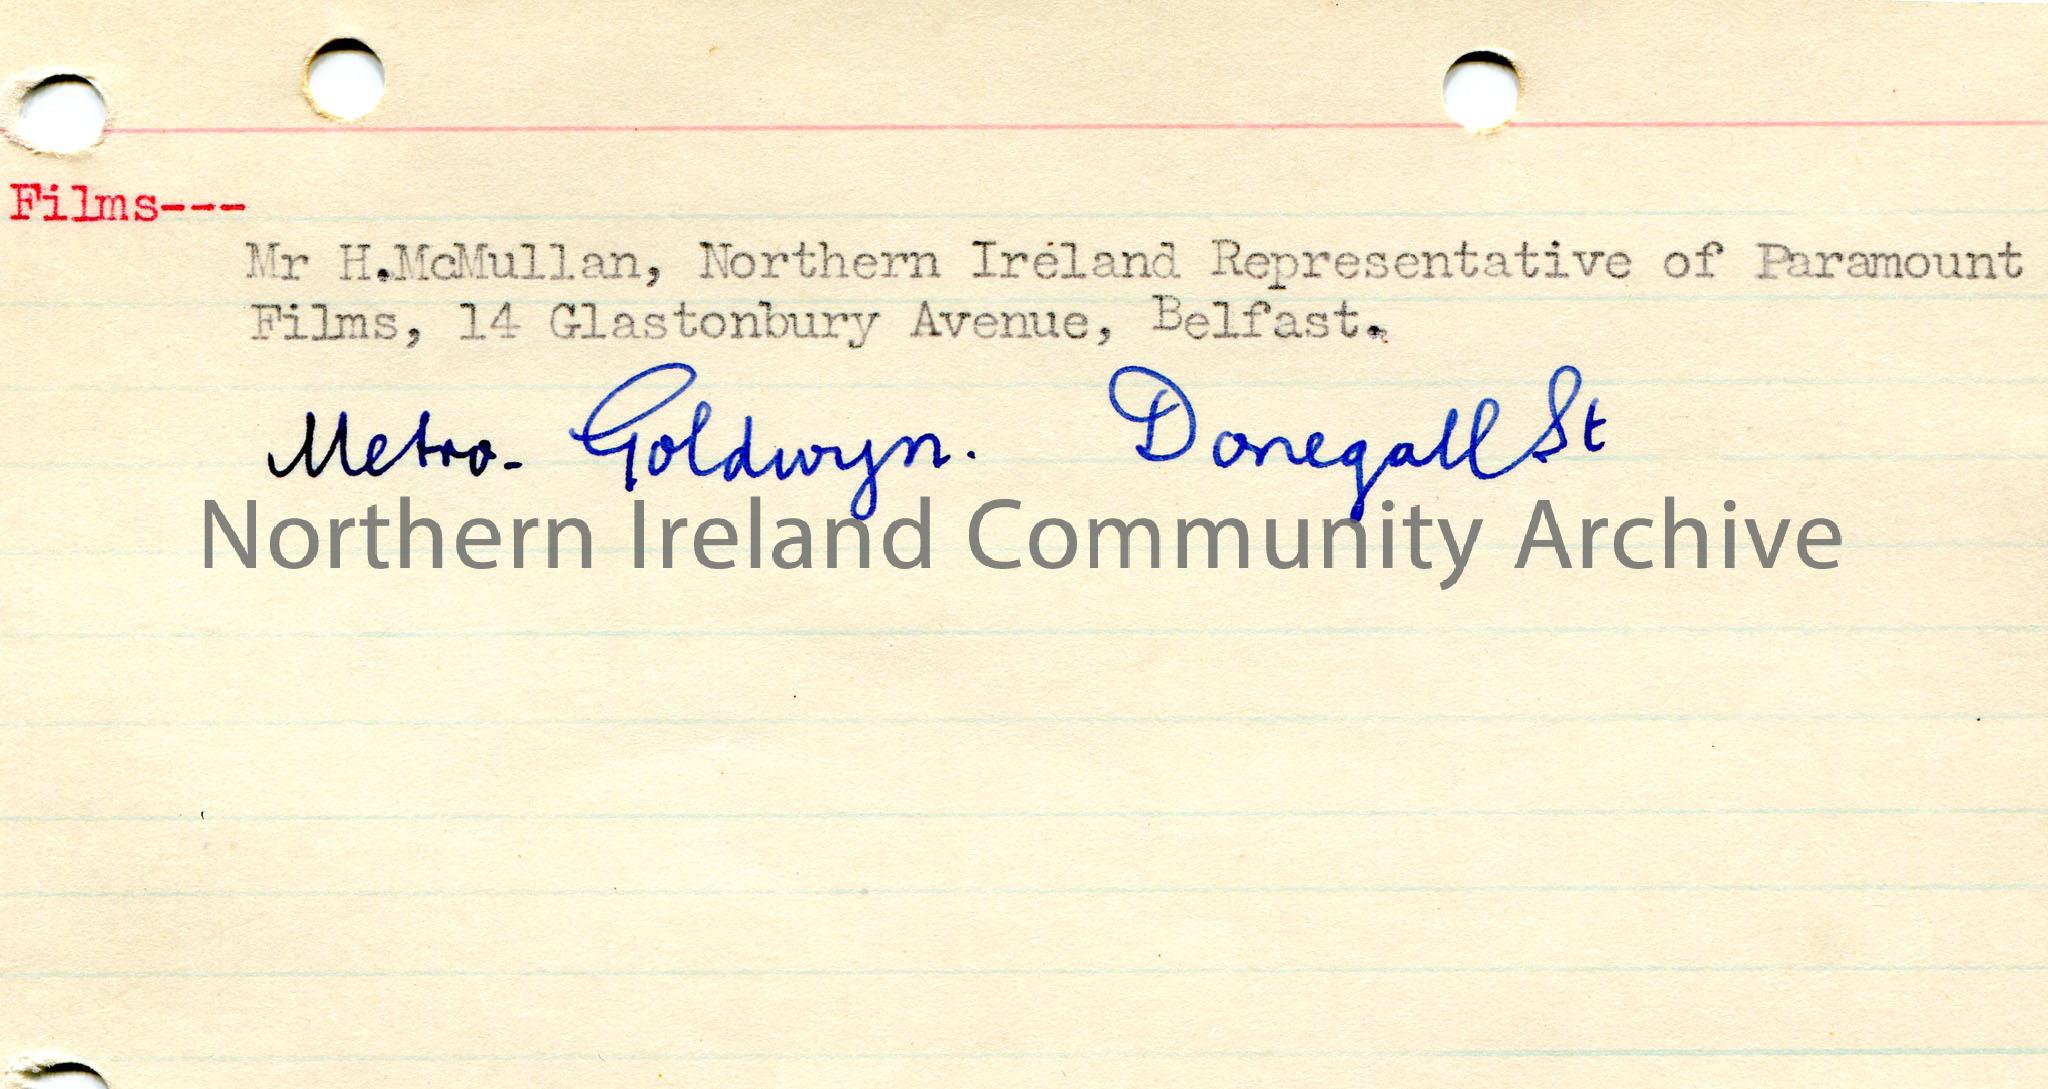 Films---
Mr H.McMullan, Northern Ireland Representative of Paramount
Films, 14 Glastonbury Avenue, Belfast.
Metro-Goldwyn. Donegall St
Northern Ireland Community Archive